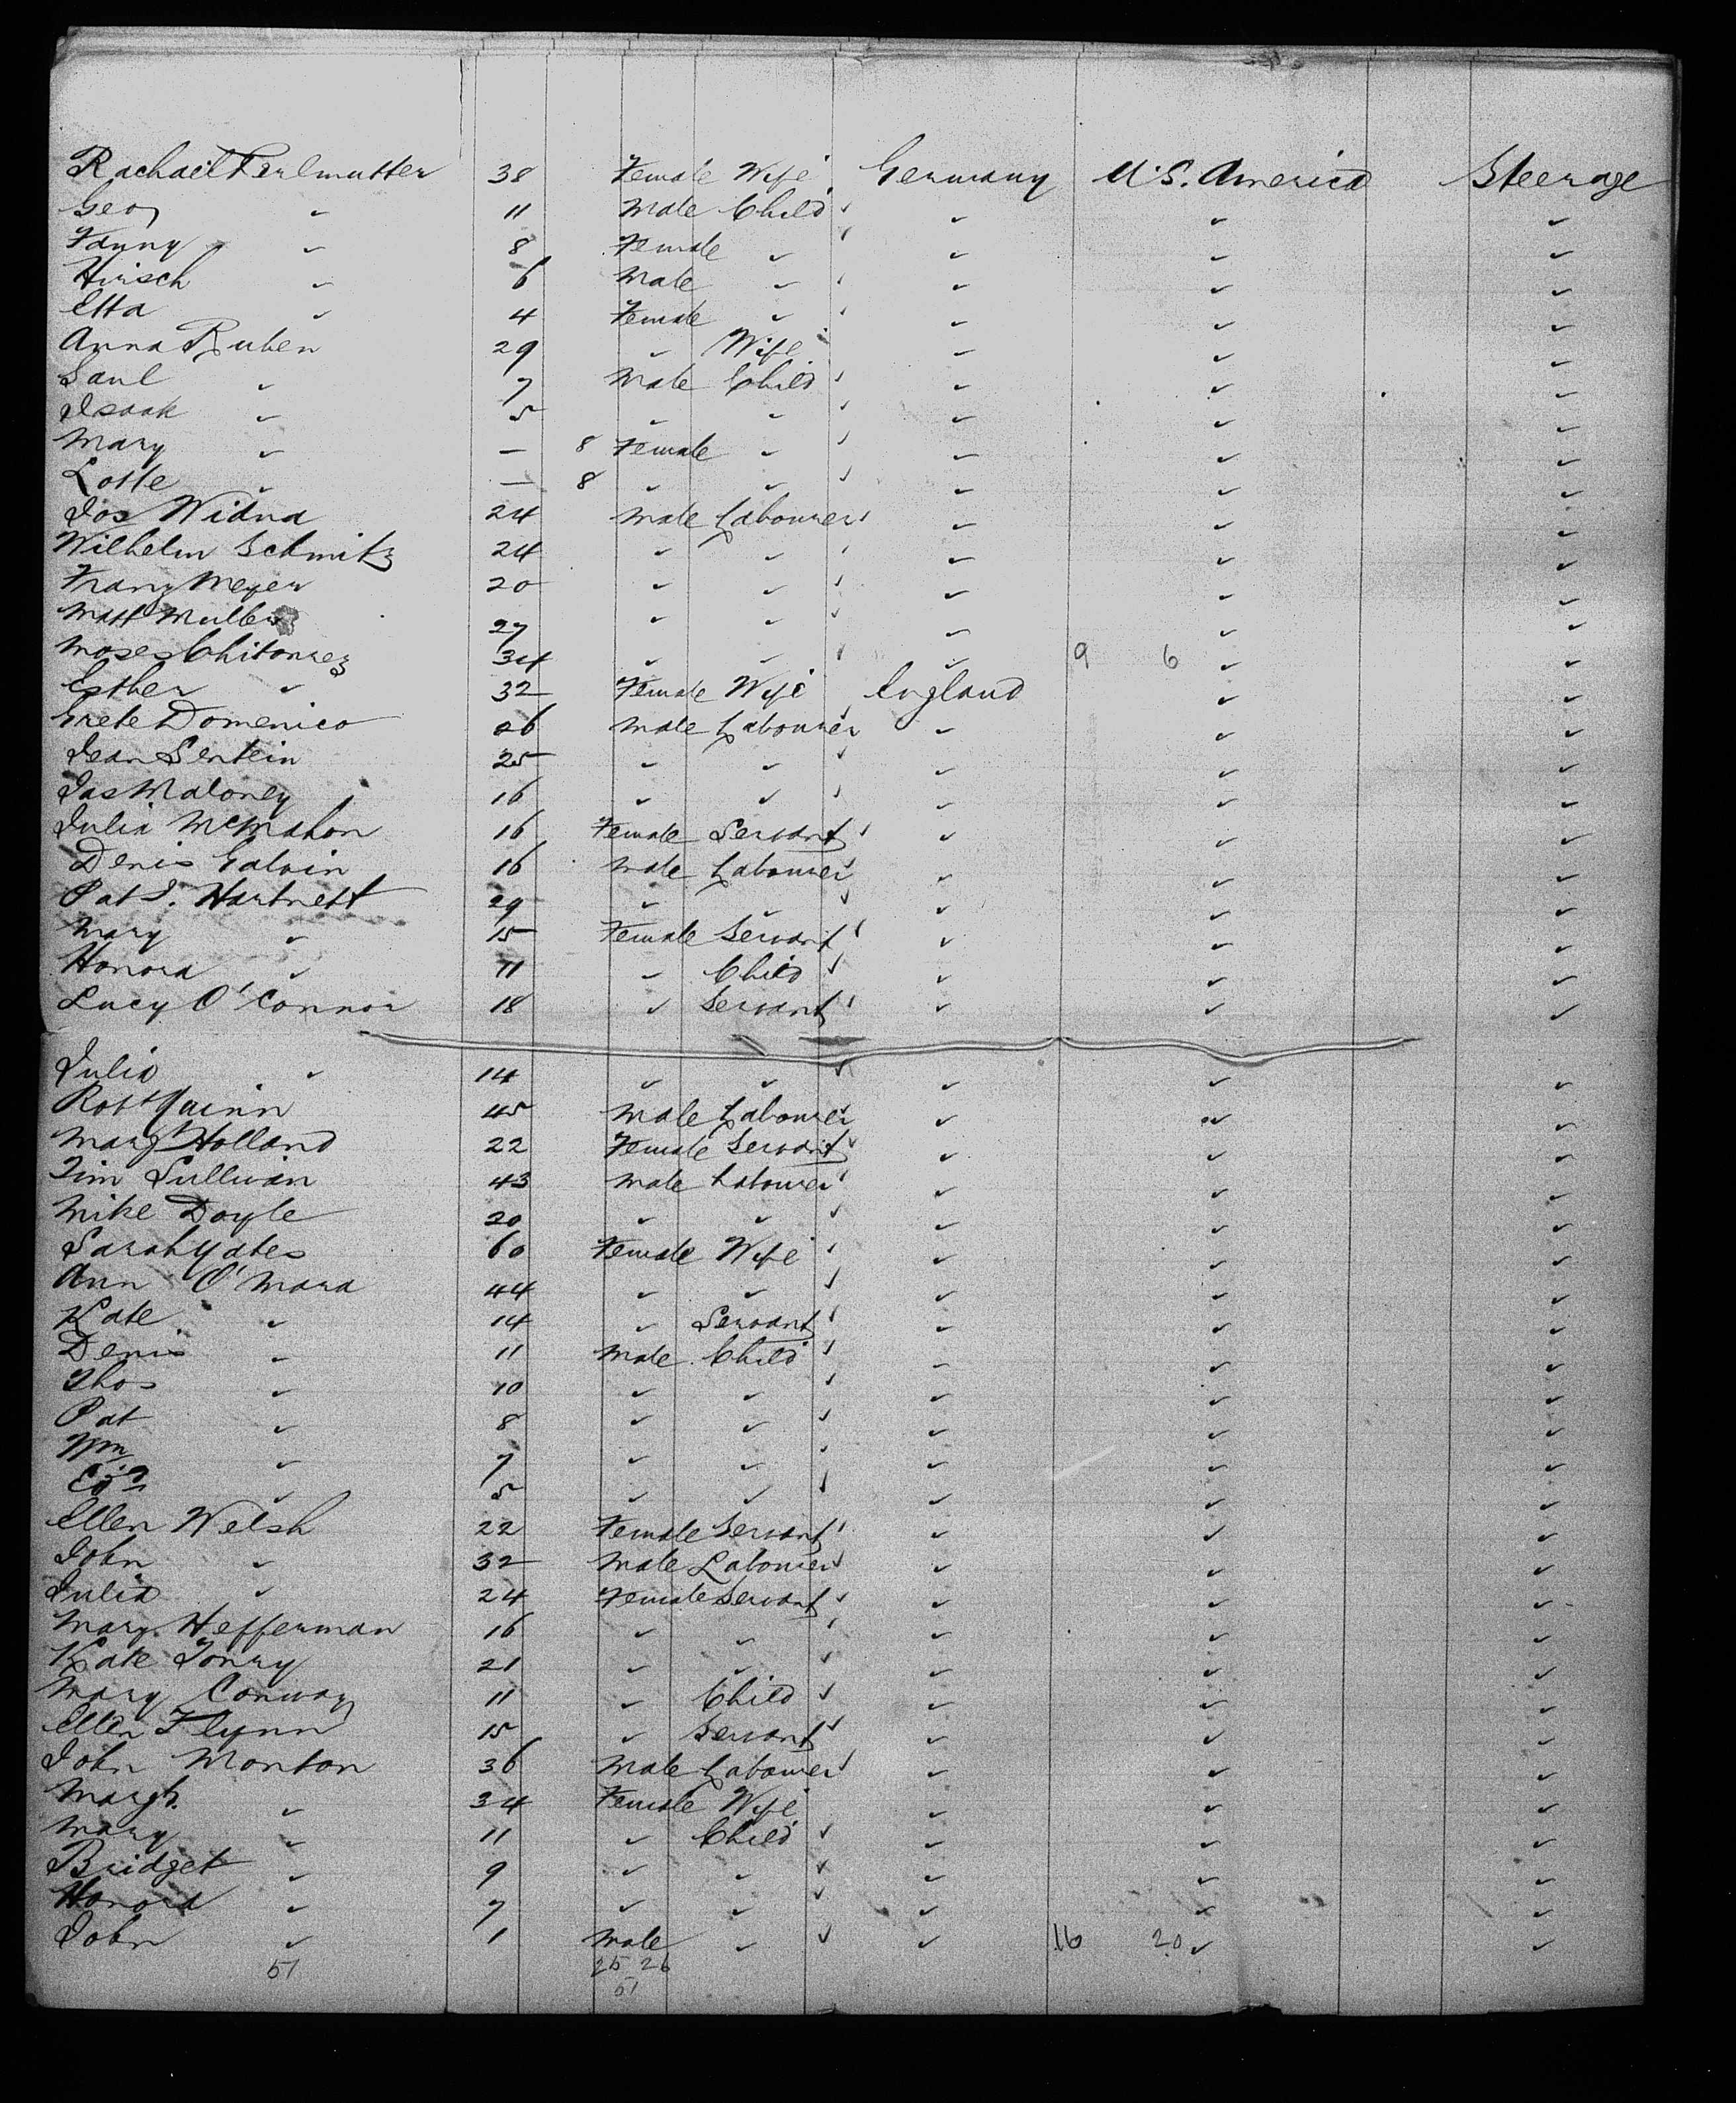 Rachael Perlmutter 38 Female Wife Germany U.S. America Steerage
Geo ✓ 11 Male Child ✓ ✓ ✓ ✓
Fanny ✓ 8 Female ✓ ✓ ✓ ✓ ✓
Hirsch ✓ 6 Male ✓ ✓ ✓ ✓ ✓
Etta ✓ 4 Female ✓ ✓ ✓ ✓ ✓
Anna Ruben 29 ✓ Wife ✓ ✓ ✓
Saul ✓ 7 Male Child ✓ ✓ ✓ ✓
Isaak ✓ 5 ✓ ✓ ✓ ✓ ✓ ✓
Mary ✓ — 8 Female ✓ ✓ ✓ ✓ ✓
Lotte ✓ — 8 ✓ ✓ ✓ ✓ ✓ ✓
Jos Widna 24 Male Labourer ✓ ✓ ✓ ✓
Wilhelm Schmitz 24 ✓ ✓ ✓ ✓ ✓ ✓
Franz Meyer 20 ✓ ✓ ✓ ✓ ✓ ✓
Matt Muller 27 ✓ ✓ ✓ ✓ ✓ ✓
Moses 34 ✓ ✓ ✓ ✓ 9 6 ✓ ✓
Esther ✓ 32 Female Wife England ✓ ✓
Domenico 26 Male Labourer ✓ ✓ ✓
Jean Sentein 25 ✓ ✓ ✓ ✓ ✓ ✓
Jas Maloney 16 ✓ ✓ ✓ ✓ ✓ ✓
Julia McMahon 16 Female Servant ✓ ✓ ✓ ✓
Denis Galvin 16 Male Labourer ✓ ✓ ✓ ✓
Pat J. Hartnett 29 ✓ ✓ ✓ ✓ ✓ ✓
Mary ✓ 15 Female Servant ✓ ✓ ✓ ✓
Honora ✓ 11 ✓ Child ✓ ✓ ✓ ✓
Lucy O'Connor 18 ✓ Servant ✓ ✓ ✓ ✓
Julia ✓ 14 ✓ ✓ ✓ ✓ ✓ ✓
Robt Quinn 45 Male Labourer ✓ ✓ ✓ ✓
Margt Holland 22 Female Servant ✓ ✓ ✓ ✓
Tim Sullivan 43 Male Labourer ✓ ✓ ✓ ✓
Mike Doyle 20 ✓ ✓ ✓ ✓ ✓ ✓
Sarah Yates 60 Female Wife ✓ ✓ ✓ ✓
Ann O'Mara 44 ✓ ✓ ✓ ✓ ✓ ✓
Kate ✓ 14 ✓ Servant ✓ ✓ ✓ ✓
Denis ✓ 11 Male Child ✓ ✓ ✓ ✓
Thos ✓ 10 ✓ ✓ ✓ ✓ ✓ ✓
Pat ✓ 8 ✓ ✓ ✓ ✓ ✓ ✓
Wm ✓ 7 ✓ ✓ ✓ ✓ ✓ ✓
Edd ✓ 5 ✓ ✓ ✓ ✓ ✓ ✓
Ellen Welsh 22 Female Servant ✓ ✓ ✓ ✓
John ✓ 32 Male Labourer ✓ ✓ ✓ ✓
Julia ✓ 24 Female Servant ✓ ✓ ✓ ✓
Mary Hefferman 16 ✓ ✓ ✓ ✓ ✓ ✓
Kate 21 ✓ ✓ ✓ ✓ ✓ ✓
Mary Conway 11 ✓ Child ✓ ✓ ✓ ✓
Ellen Flynn 15 ✓ Servant ✓ ✓ ✓ ✓
John Monton 36 Male Labourer ✓ ✓ ✓ ✓
Margt ✓ 34 Female Wife ✓ ✓ ✓
Mary ✓ 11 ✓ Child ✓ ✓ ✓ ✓
Bridget ✓ 9 ✓ ✓ ✓ ✓ ✓ ✓
Honora ✓ 7 ✓ ✓ ✓ ✓ ✓ ✓
John ✓ 1 Male ✓ ✓ ✓ 16 20 ✓ ✓
51 25 26
51